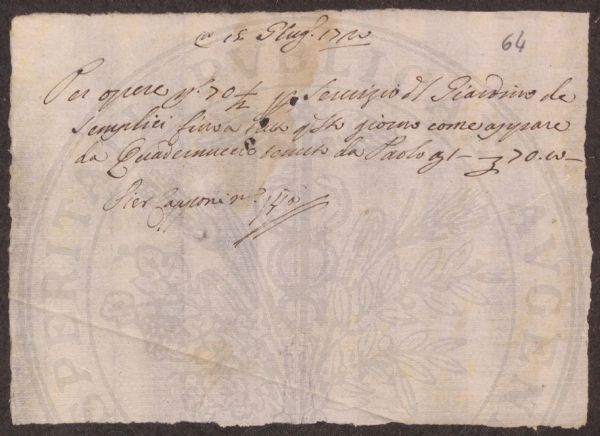 15 Giug. 1720
64
Per opere n.º 70 ½ Servizio d Giardino de
Semplici fino a tutto qsto giorno come appare
da Quadernuccio tenuto da Paolo 70.10
Pier Capponi
PROSPERITATI PVBLICAE AVGEN